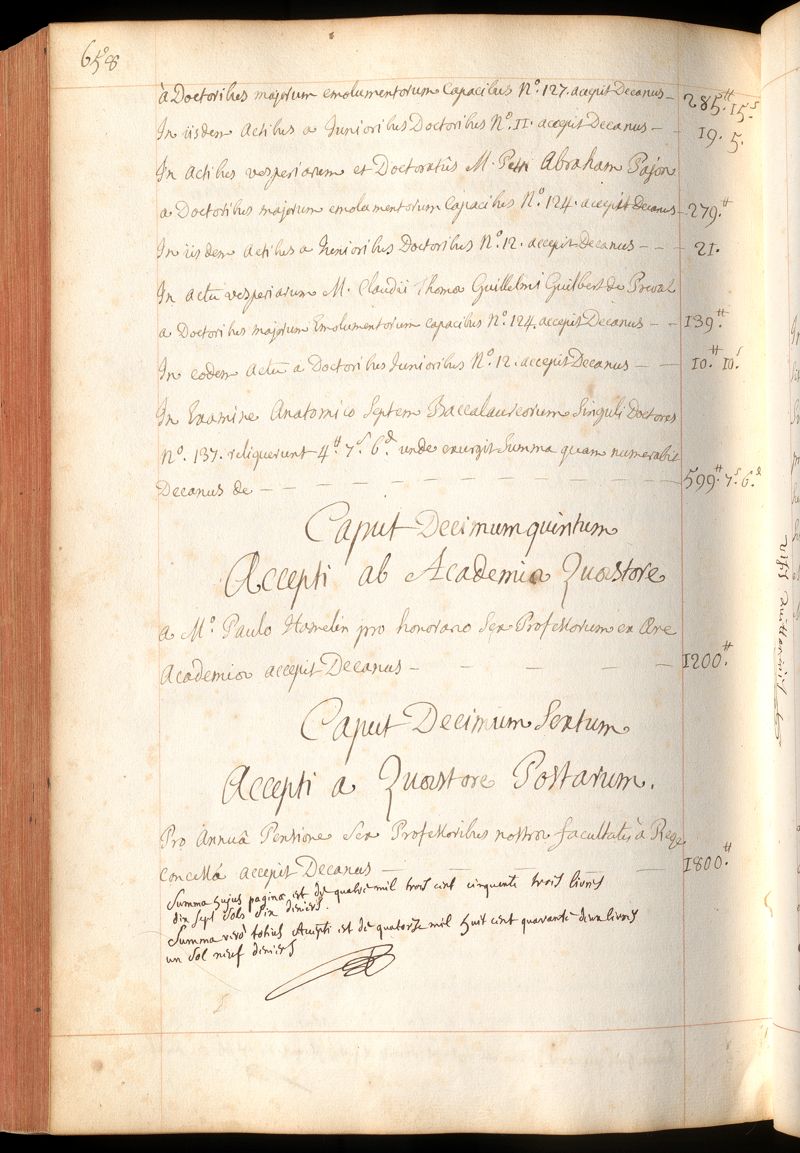 658
à Doctoribus majorum emolumentorum Capacibus N.º 127. accepit Decanus - 285.# 15.s
In iisdem Actibus a Junioribus Doctoribus N.º 11. accepit Decanus - - 19. 5.
In Actibus vesperiarum et Doctoratûs M. Petri Abraham Pajon
a Doctoribus majorum emolumentorum Capacibus N.º 124. accepit Decanus - 279.#
In iisdem Actibus a Junioribus Doctoribus N.º 12. accepit Decanus - - - 21.
In Actu vesperiarum M. Claudii Thomæ Guillelmi Guilbert de Preval
a Doctoribus majorum Emolumentorum capacibus N.º 124. accepit Decanus - - 139.#
In eodem Actu a Doctoribus Junioribus N.º 12. accepit Decanus - - 10.# 10.s
In Examine Anatomico Septem Baccalaureorum Singuli Doctores
N.º 137. reliquerunt 4.# 7.s 6.d unde exurgit Summa quam numerabit
Decanus de - - - - - - - - - - - - 599.# 7.s 6.d
Caput Decimum quintum
Accepti ab Academiæ Quæstore
a M.º Paulo Hamelin pro honorario Sex Professorum ex Ære
Academiæ accepit Decanus - - - - - 1200.#
Caput Decimum Sextum
Accepti a Quæstore Postarum.
Pro Annuâ Pensione Sex Professoribus nostræ facultatis à Rege
concessâ accepit Decanus - - - - 1800.#
Summa hujus paginæ est de quatre mil trois cent cinquante trois livres
dix sept sols six deniers.
Summa verò totius Accepti est de quatorze mil huit cent quarante deux livres
un sol neuf deniers